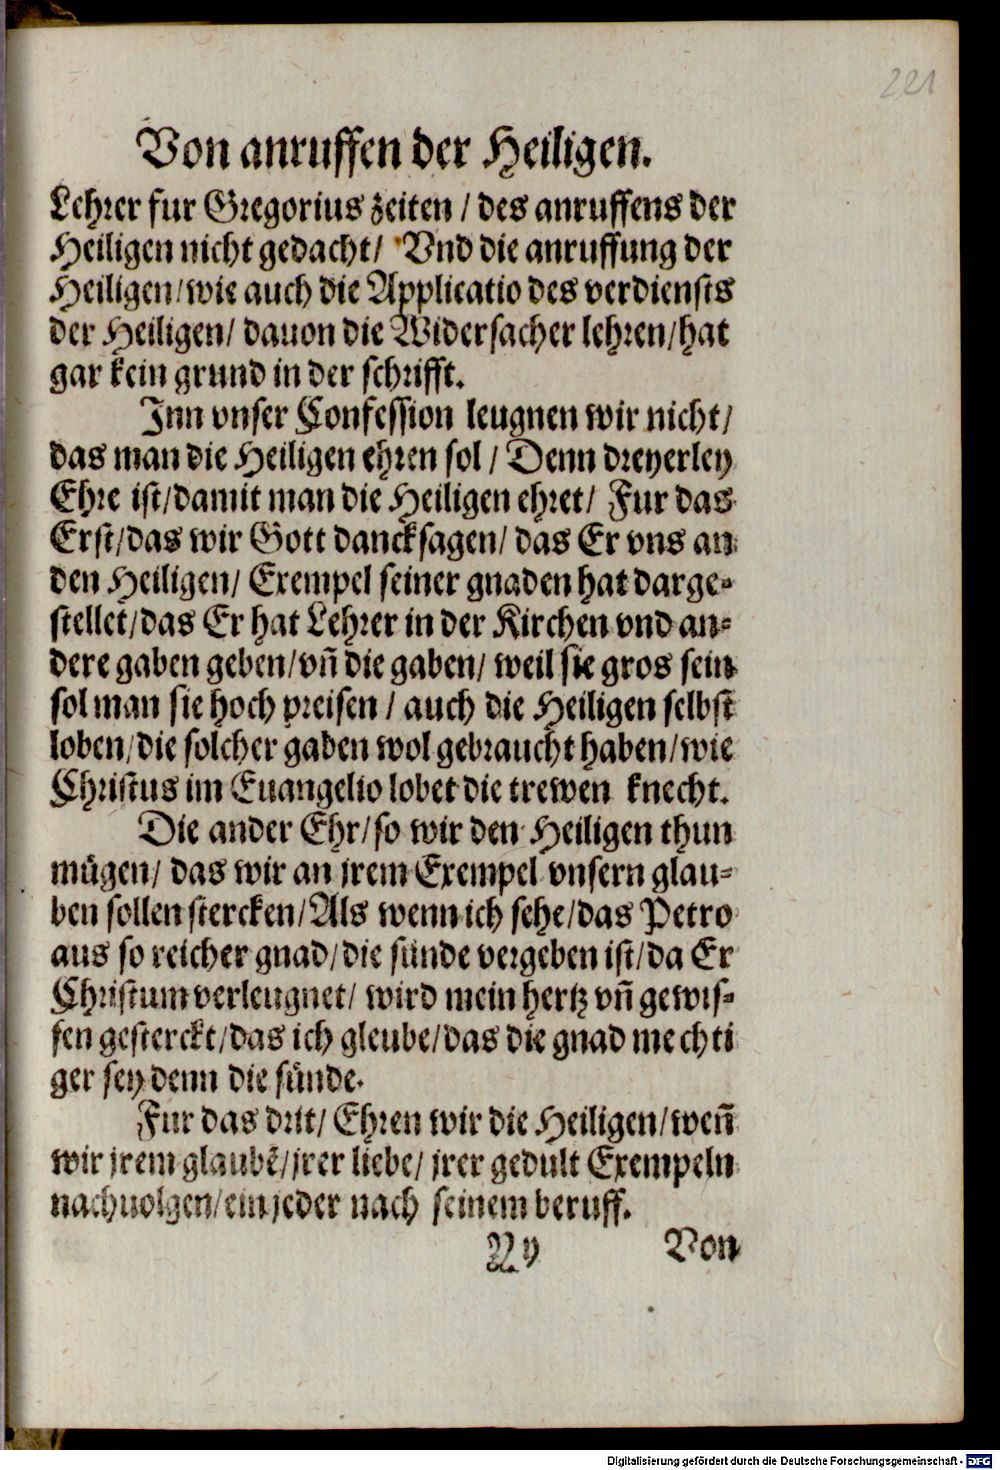 221
Von anruffen der Heiligen.
Lehrer fur Gregorius zeiten / des anruffens der
Heiligen nicht gedacht / Vnd die anruffung der
Heiligen / wie auch die Applicatio des verdiensts
der Heiligen / dauon die Widersacher lehren / hat
gar kein grund in der schrifft.
Inn vnser Confession leugnen wir nicht /
das man die Heiligen ehren sol / Denn dreyerley
Ehre ist / damit man die Heiligen ehret / Fur das
Erst / das wir Gott dancksagen / das Er vns an
den Heiligen / Exempel seiner gnaden hat darge-
stellet / das Er hat Lehrer in der Kirchen vnd an-
dere gaben geben / vñ die gaben / weil sie gros sein
sol man sie hoch preisen / auch die Heiligen selbst
loben / die solcher gaben wol gebraucht haben / wie
Christus im Euangelio lobet die trewen knecht.
Die ander Ehr / so wir den Heiligen thun
mügen / das wir an jrem Exempel vnsern glau-
ben sollen stercken / Als wenn ich sehe / das Petro
aus so reicher gnad / die sünde vergeben ist / da Er
Christum verleugnet / wird mein hertz vñ gewis-
sen gesterckt / das ich gleube / das die gnad mechti
ger sey denn die sünde.
Fur das drit / Ehren wir die Heiligen / weñ
wir jrem glaubẽ / jrer liebe / jrer gedult Exempeln
nachuolgen / ein jeder nach seinem beruff.
Yy Von
Digitalisierung gefördert durch die Deutsche Forschungsgemeinschaft - DFG